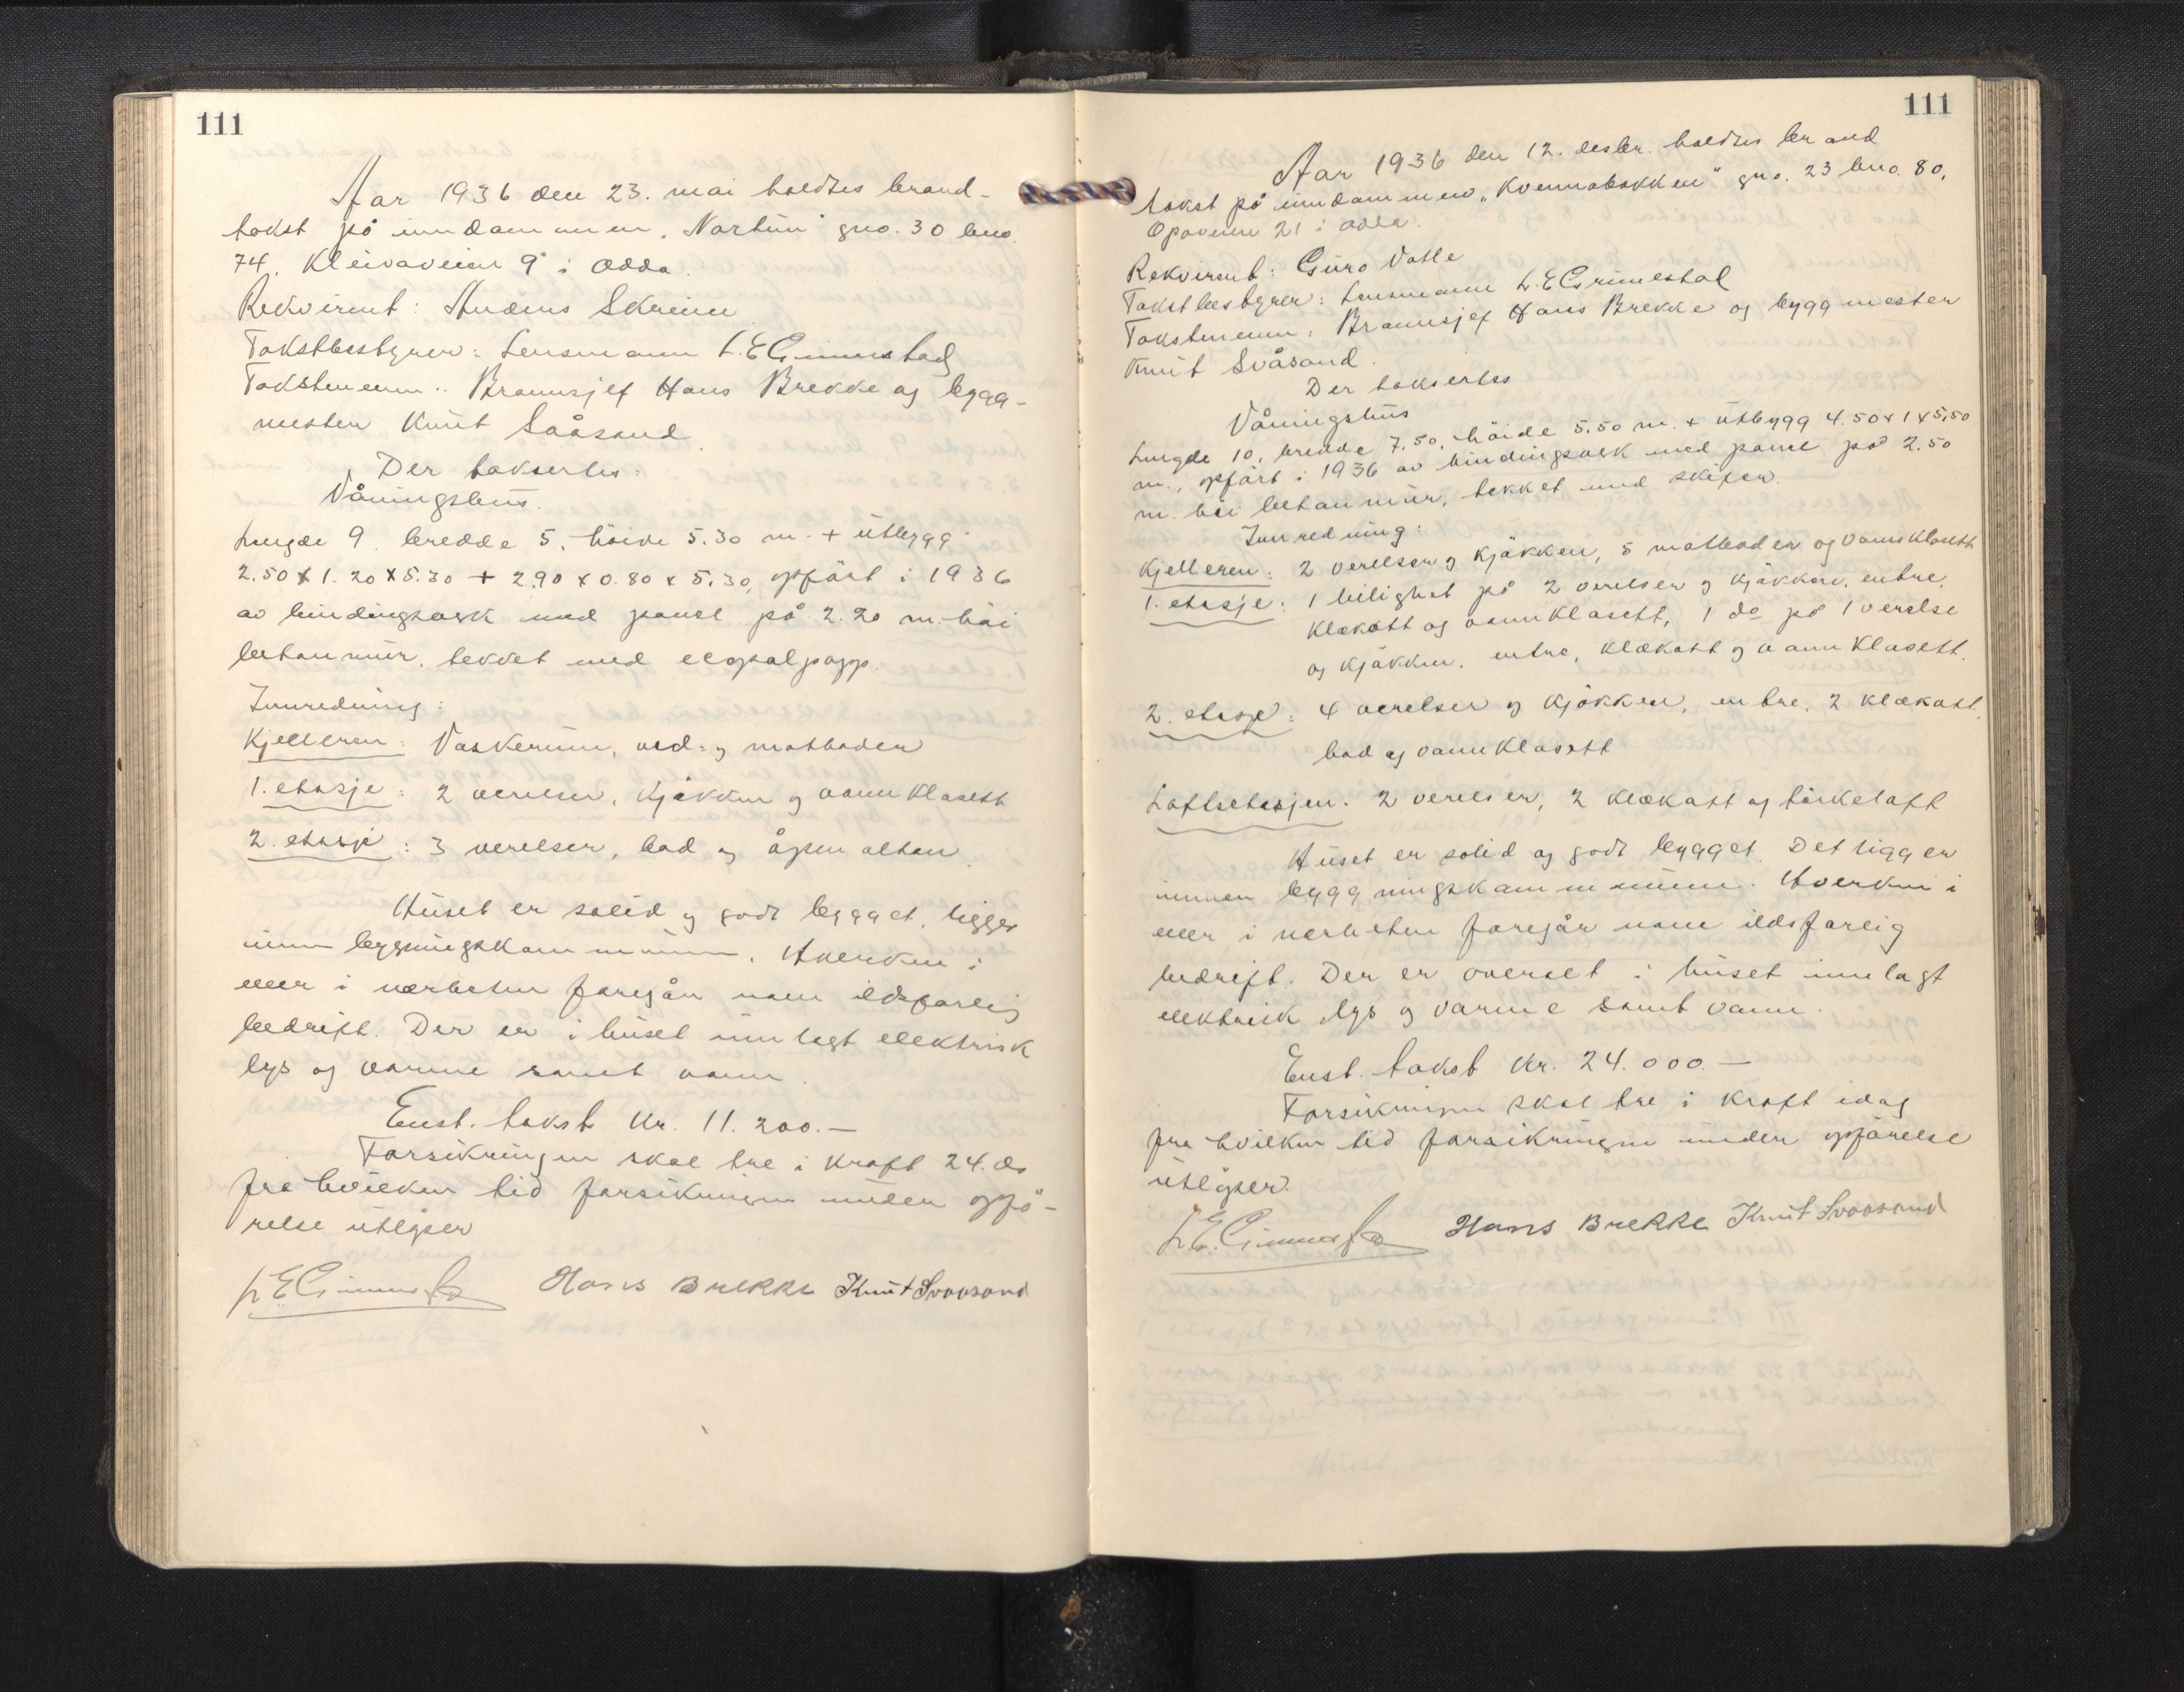 111
Aar 1936 den 23. mai holdtes brand-
takst på eiendommen "Nortun" gno. 30 bno.
74, Kleivaveien 9 i Odda.
Rekvirent: Anders Skreien
Takstbestyrer: Lensmann L.E. Grimestad
Takstmenn: Brannsjef Hans Brekke og bygg-
mester Knut Svåsand.
Der taksertes:
Våningshus.
Lengde 9, bredde 5, höide 5.30 m. + utbygg
2.50 x 1.20 x 5.30 + 2.90 x 0.80 x 5.30, opfört i 1936
av bindingsverk med panel på 2.20 m. höi
betonmur, tekket med papp.
Innredning:
Kjelleren: Vaskerum, ved- og matboder
1. etasje: 2 verelser, kjökken og vannklosett
2. etasje: 3 verelser, bad og åpen altan.
Huset er solid og godt bygget, ligger
innen bygningskommunen. Hverken i
eller i nærheten foregår noen ildsfarlig
bedrift. Der er i huset innlagt elektrisk
lys og varme samt vann.
Enst. takst kr. 11.200.—
Forsikringen skal tre i kraft 24. ds
fra hvilken tid forsikringen under opfö-
relse utlöper
L.E. Grimestad Hans Brekke Knut Svaasand
111
Aar 1936 den 12. desbr. holdtes brand
takst på eiendommen "Kvennabakken" gno. 23 bno. 80,
Opoveien 21 i Odda.
Rekvirent: Guro Valle
Takstbestyrer: Lensmann L.E. Grimestad
Takstmenn: Brannsjef Hans Brekke og byggmester
Knut Svåsand.
Der taksertes
Våningshus
Lengde 10, bredde 7.50, höide 5.50 m. + utbygg 4.50 x 1 x 5.50
m., opfört i 1936 av bindingsverk med panel på 2.50
m. höi betonmur, tekket med skifer.
Innredning:
Kjelleren: 2 verelser og kjökken, 5 matboder og vannklosett
1. etasje: 1 leilighet på 2 verelser og kjökken, entre,
klekott og vannklosett, 1 do på 1 verelse
og kjökken, entre, klækott og vannklosett.
2. etasje: 4 verelser og kjökken, entre, 2 klækott,
bad og vannklosett
Loftsetasjen. 2 verelser, 2 klækott og törkeloft
Huset er solid og godt bygget. Det ligger
innen byggningskommunene. Hverken i
eller i nærheten foregår noen ildsfarlig
bedrift. Der er overalt i huset innlagt
elektrisk lys og varme samt vann.
Enst. takst kr. 24.000.—
Forsikringen skal tre i kraft idag
fra hvilken tid forsikringen under opförelse
utlöper.
L.E. Grimestad Hans Brekke Knut Svaasand